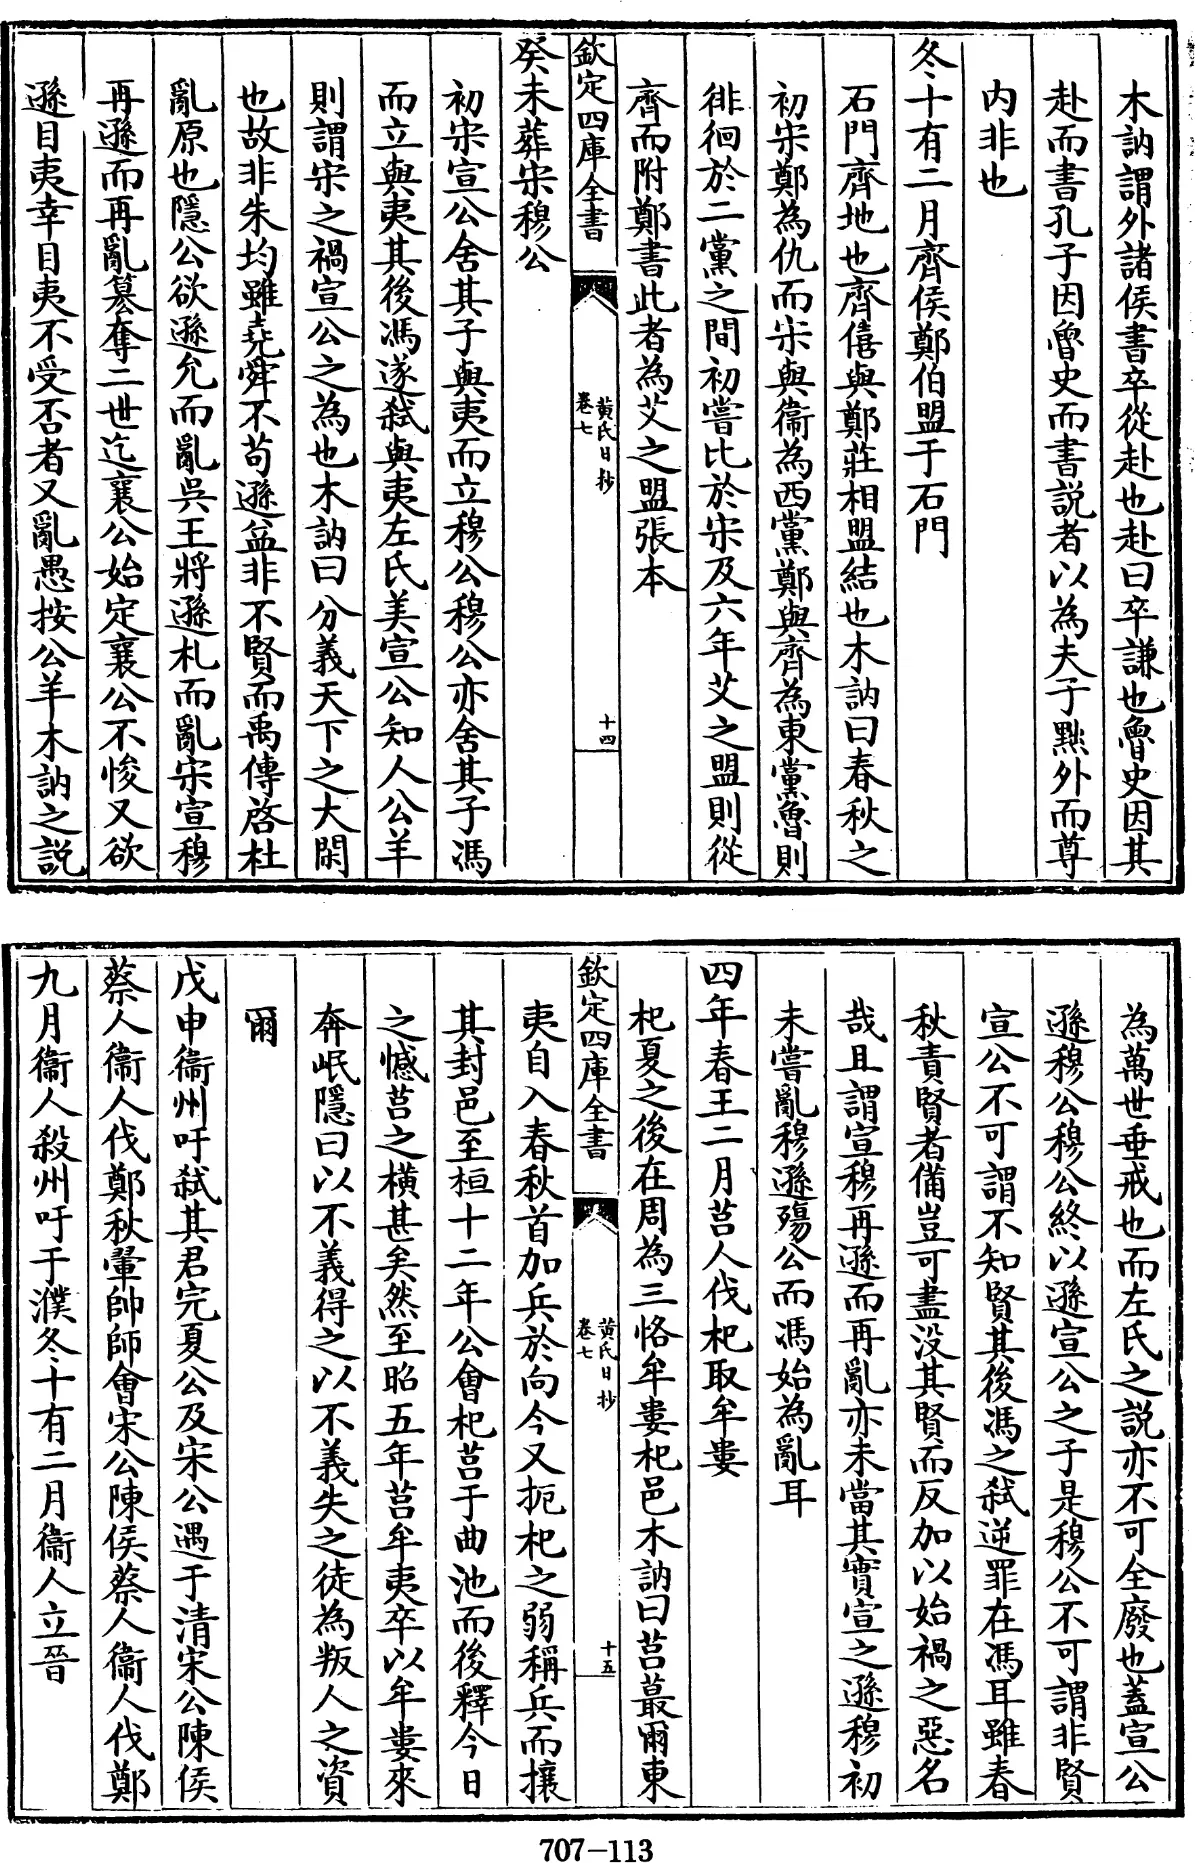 木訥謂外諸侯書卒從赴也赴曰卒謙也魯史因其
赴而書孔子因魯史而書説者以為夫子黜外而尊
内非也
冬十有二月齊侯鄭伯盟于石門
石門齊地也齊僖與鄭莊相盟結也木訥曰春秋之
初宋鄭為仇而宋與衞為西黨鄭與齊為東黨魯則
徘徊於二黨之間初嘗比於宋及六年艾之盟則從
齊而附鄭書此者為艾之盟張本
欽定四庫全書
黄氏日抄
卷七
十四
癸未葬宋穆公
初宋宣公舍其子與夷而立穆公穆公亦舍其子馮
而立與夷其後馮遂弑與夷左氏美宣公知人公羊
則謂宋之禍宣公之為也木訥曰分義天下之大閑
也故非朱均雖堯舜不苟遜益非不賢而禹傳啓杜
亂原也隱公欲遜允而亂吳王將遜札而亂宋宣穆
再遜而再亂簒奪二世迄襄公始定襄公不悛又欲
遜目夷幸目夷不受否者又亂愚按公羊木訥之説
為萬世垂戒也而左氏之説亦不可全廢也蓋宣公
遜穆公穆公終以遜宣公之子是穆公不可謂非賢
宣公不可謂不知賢其後馮之弑逆罪在馮耳雖春
秋責賢者備豈可盡没其賢而反加以始禍之惡名
哉且謂宣穆再遜而再亂亦未當其實宣之遜穆初
未嘗亂穆遜殤公而馮始為亂耳
四年春王二月莒人伐杞取牟婁
杞夏之後在周為三恪牟婁杞邑木訥曰莒蕞爾東
欽定四庫全書
黄氏日抄
卷七
十五
夷自入春秋首加兵於向今又扼杞之弱稱兵而攘
其封邑至桓十二年公會杞莒于曲池而後釋今日
之憾莒之横甚矣然至昭五年莒牟夷卒以牟婁來
奔岷隱曰以不義得之以不義失之徒為叛人之資
爾
戊申衞州吁弑其君完夏公及宋公遇于清宋公陳侯
蔡人衞人伐鄭秋翬帥師會宋公陳侯蔡人衞人伐鄭
九月衞人殺州吁于濮冬十有二月衞人立晉
707-113